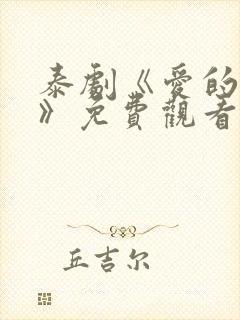 泰劇《愛的
》免費觀看
丘吉尔